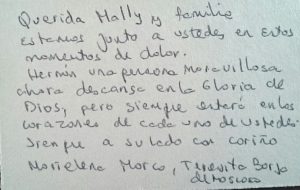 Querida Mally y familia
estamos junto a ustedes en estos
momentos de dolor.
Hernán una persona maravillosa
ahora descansa en la Gloria de
Dios, pero siempre estará en los
corazones de cada uno de ustedes.
Siempre a su lado con cariño
Marielena Morco, Teresita Borja
de Moscoso